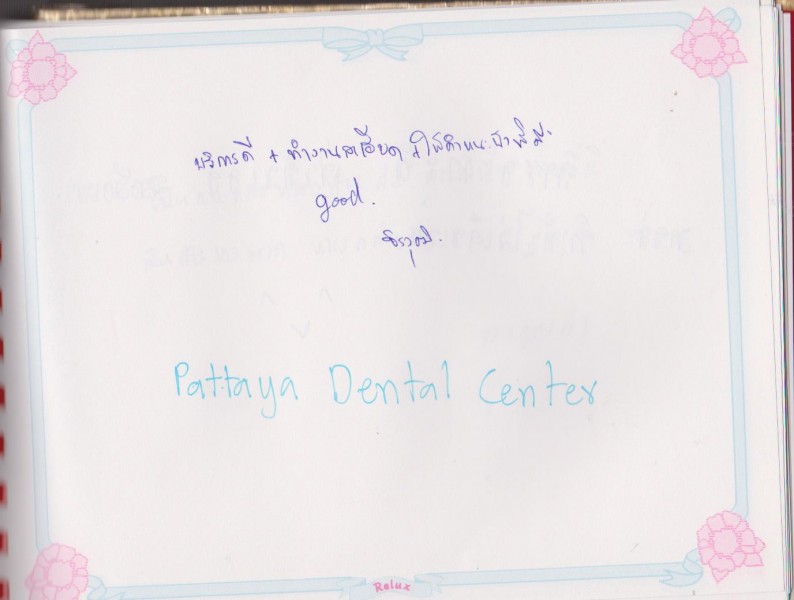 บริการดี + ทำงานละเอียด + ให้คำแนะนำที่ดี
good.
ธีรวุฒิ.
Pattaya Dental Center
Relux